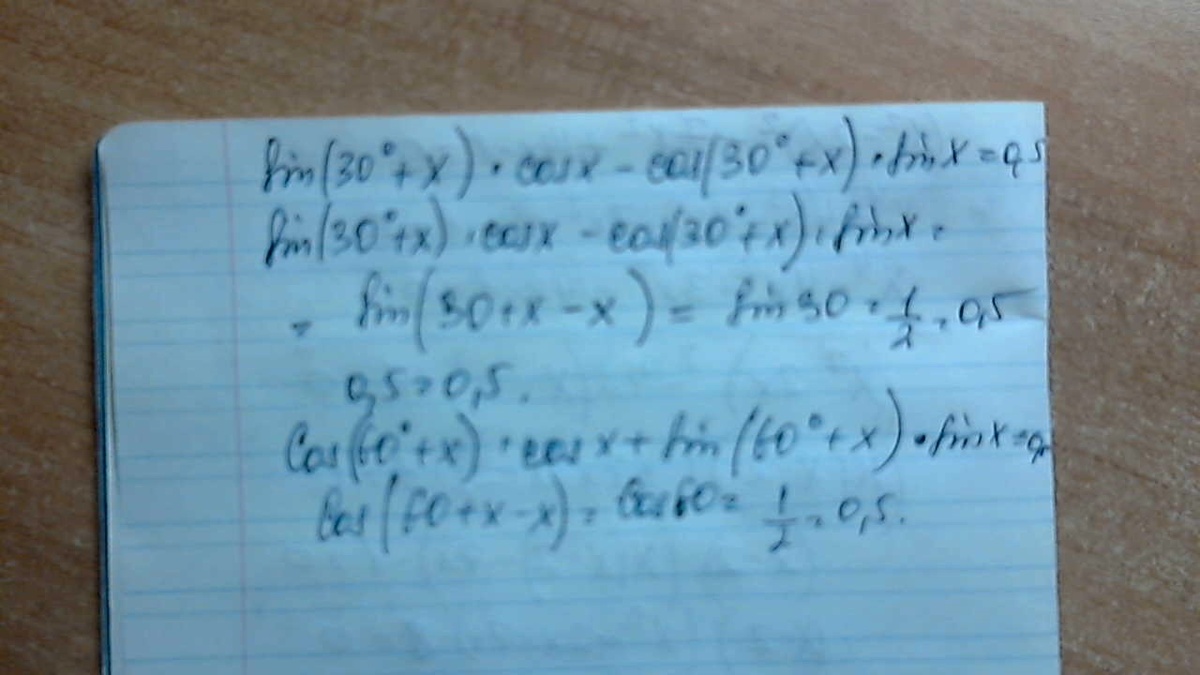 sin(30°+x)·cosx-cos(30°+x)·sinx=0,5
sin(30°+x)·cosx-cos(30°+x)·sinx=
= sin(30+x-x)= sin30=1/2=0,5
0,5=0,5.
Cos(60°+x)·cosx+sin(60°+x)·sinx=0,
Cos(60+x-x)=Cos60=1/2=0,5.